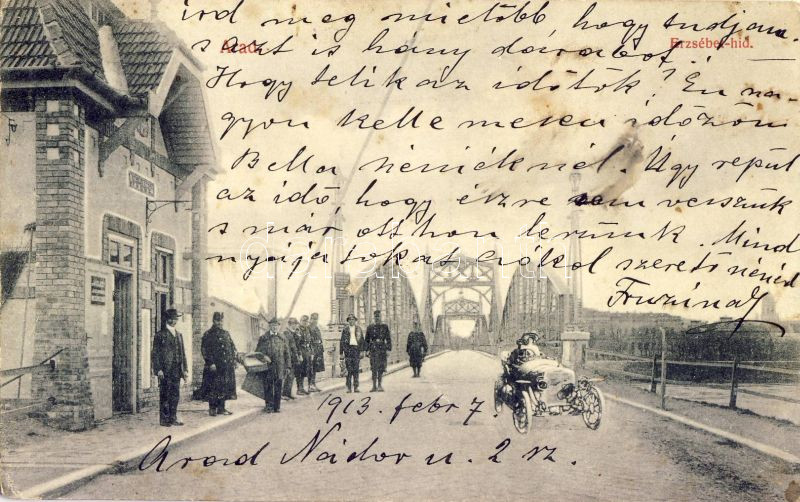 írd meg mielőbb hogy tudjam
s azt is hány darabot.
Arad.
Erzsébet-híd.
Hogy telik az időtök? Én na-
gyon kellemesen időzöm
Bella néniéknél. Úgy repül
az idő, hogy észre sem veszszük
s már otthon leszünk. Mind
nyájatokat csókol szerető nénéd
Fruzina
1913. febr 7.
Arad Nádor u. 2 sz.